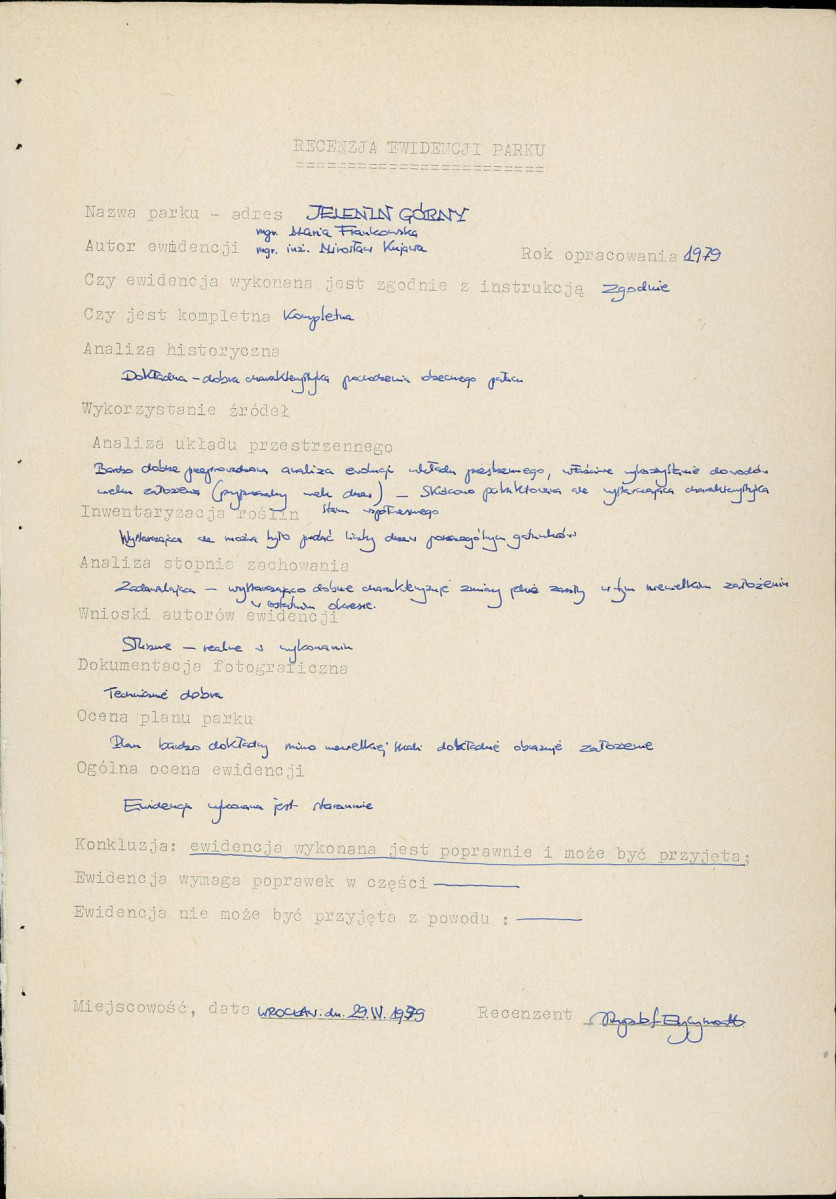 RECENZJA EWIDENCJI PARKU
=========================
Nazwa parku - adres JELENIN GÓRNY
mgr. Maria Frankowska
Autor ewidencji mgr. inż. Mirosław Kujawa Rok opracowania 1979
Czy ewidencja wykonana jest zgodnie z instrukcją Zgodnie
Czy jest kompletna Kompletna
Analiza historyczna
Dokładna - dobra charakterystyka pochodzenia obecnego pałacu
Wykorzystanie źródeł
Analiza układu przestrzennego
Bardzo dobrze przeprowadzona analiza ewolucji układu przestrzennego, właściwe wykorzystanie dowodów
wieku założenia (przypuszczalny wiek drzew) - Skrótowo potraktowana ale wystarczająca charakterystyka
Inwentaryzacja roślin stanu współczesnego
Wystarczająca ale można było podać liczby drzew poszczególnych gatunków
Analiza stopnia zachowania
Zadawalająca - wystarczająco dobrze charakteryzuje zmiany jakie zaszły w tym niewielkim założeniu
w ostatnim okresie.
Wnioski autorów ewidencji
Słuszne - realne w wykonaniu
Dokumentacja fotograficzna
Technicznie dobra
Ocena planu parku
Plan bardzo dokładny mimo niewielkiej skali dokładnie obrazuje założenie
Ogólna ocena ewidencji
Ewidencja wykonana jest starannie
Konkluzja: ewidencja wykonana jest poprawnie i może być przyjęta;
Ewidencja wymaga poprawek w części
Ewidencja nie może być przyjęta z powodu :
Miejscowość, data WROCŁAW. dn. 29.IV.1979 Recenzent